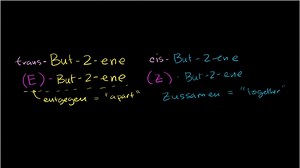 trans- But-2-ene
(E) - But-2-ene
entgegen = "apart"
cis- But-2-ene
(Z) - But-2-ene
zussamen = "together"